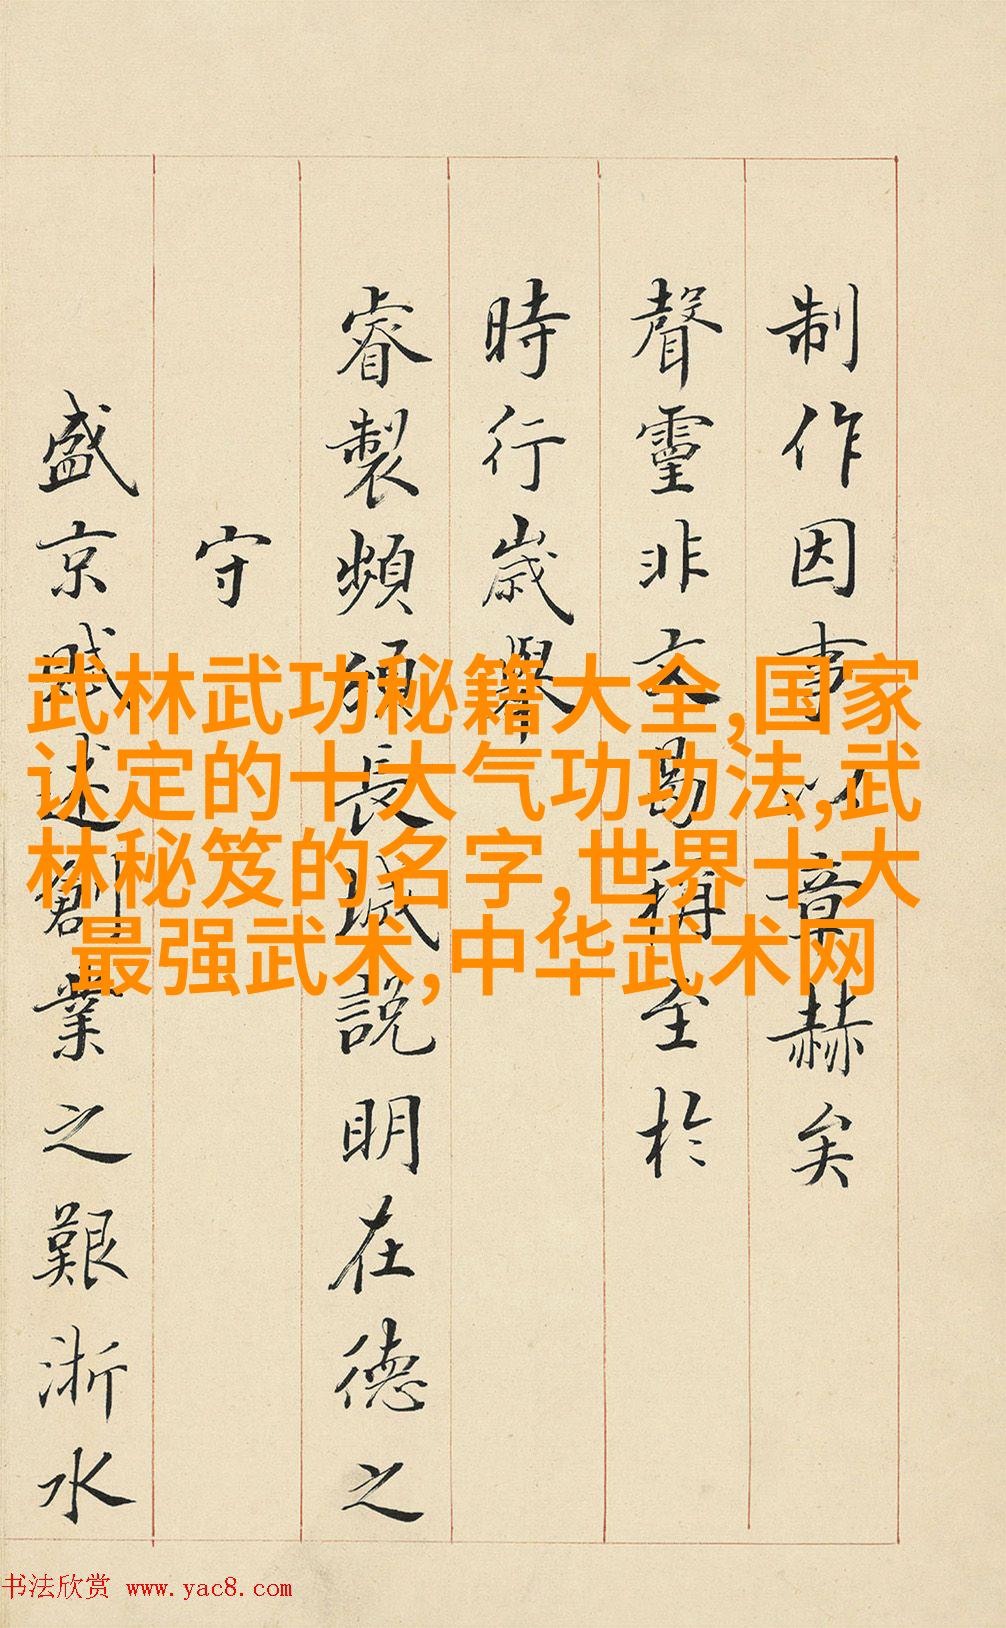 制作因事以章赫矣
聲靈非文曷稱全於
時行歲舉
睿製頻頒長城說明在德之
守
盛京賦述創業之艱浙水
武林武功秘籍大全,国家
认定的十大气功功法,武
林秘笈的名字,世界十大
最强武术,中华武术网
书法欣赏 www.yac8.com